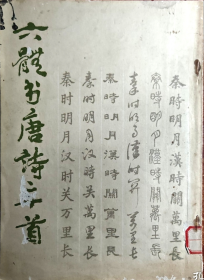 六體书唐詩三首
秦時明月漢時關萬里長
秦時明月漢時關萬里長
秦時明月漢時關萬里長
秦時明月漢時關萬里長
秦时明月漢時关萬里长
秦时明月汉时关万里长